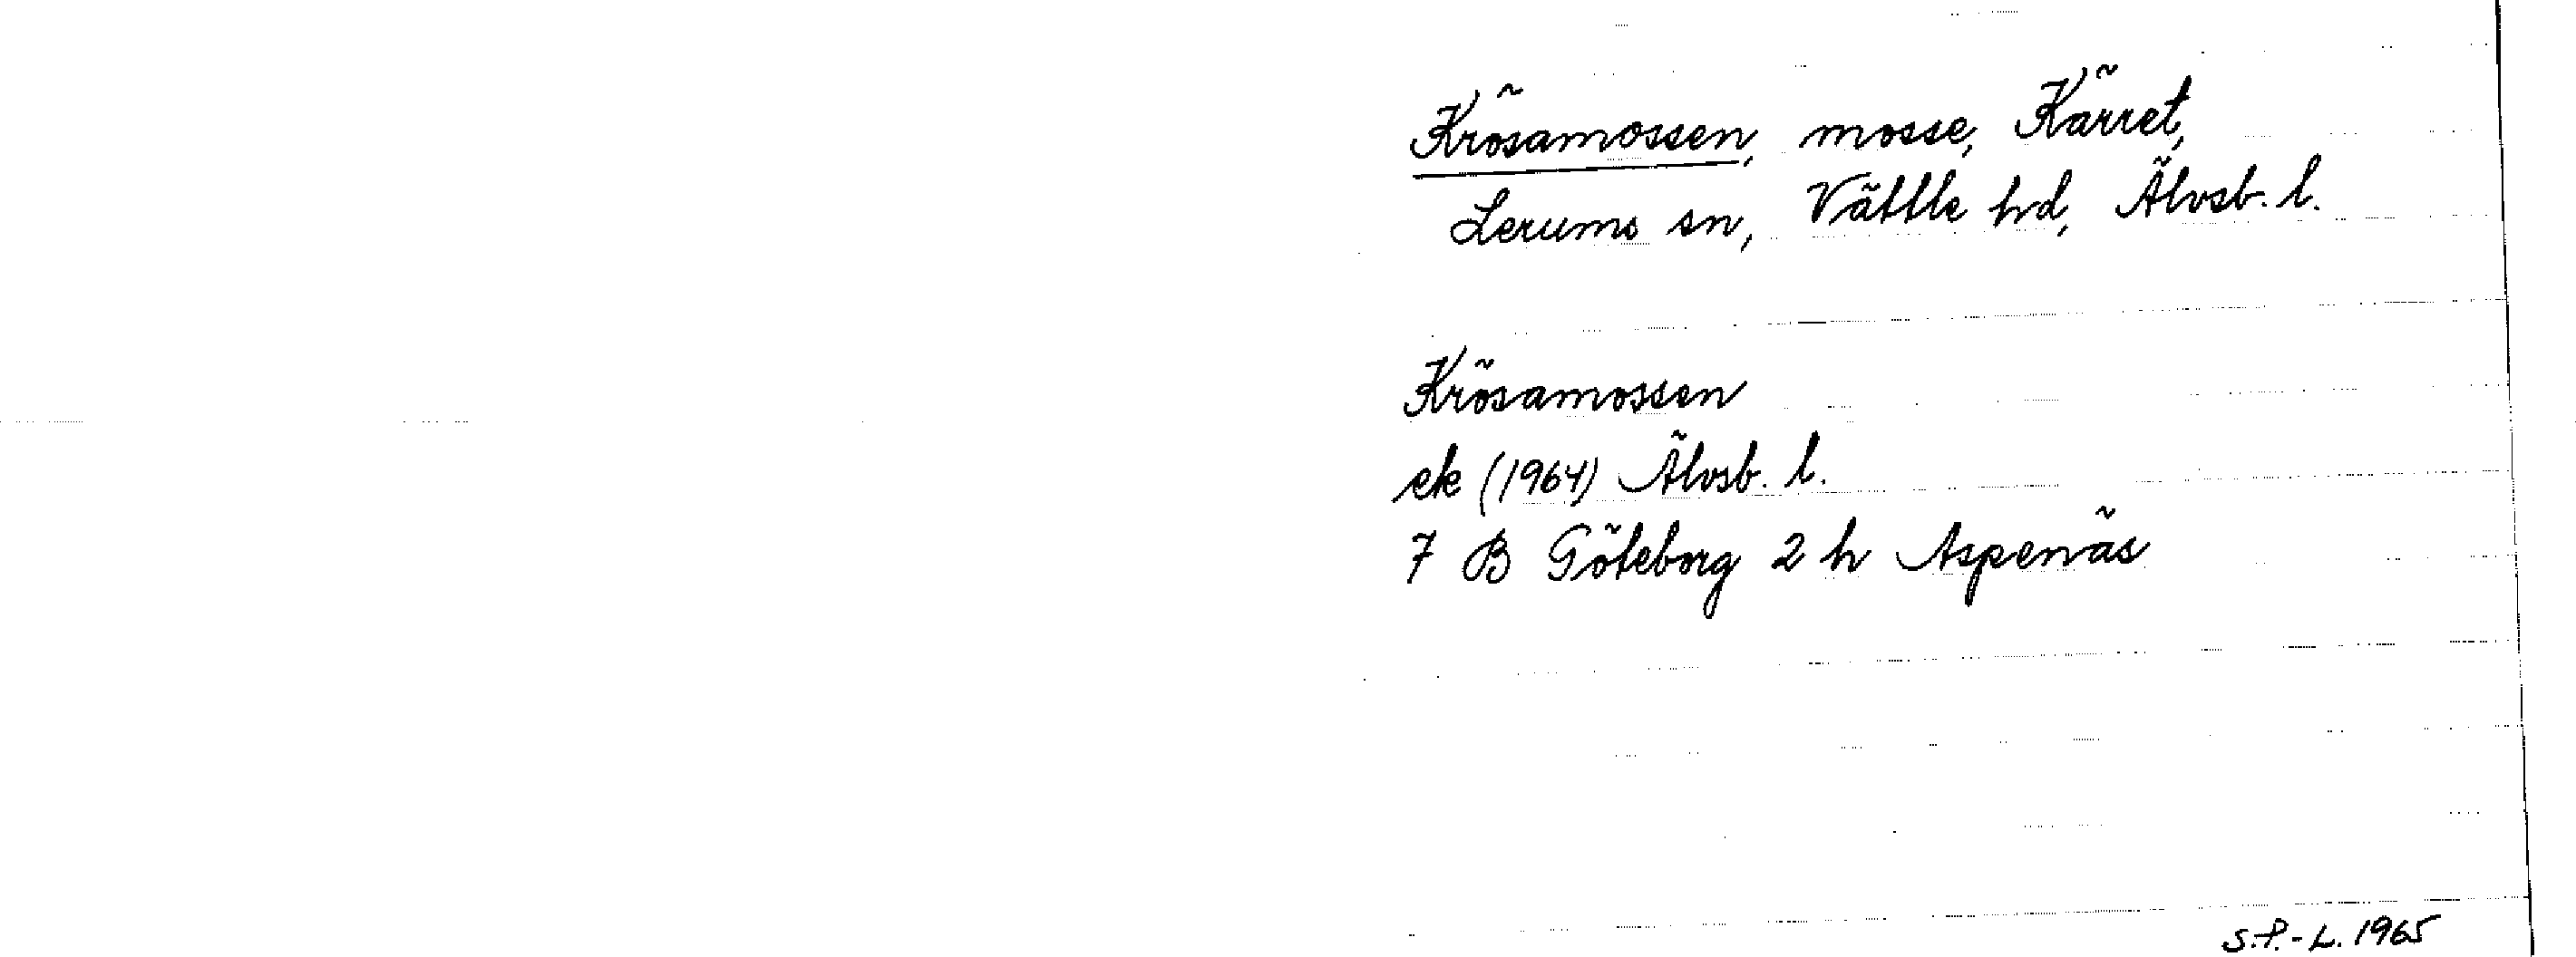 Krösamossen, mosse, Kärret,
Lerums sn, Vättle hd, Älvsb. l.
Krösamossen
ek (1964) Älvsb. l.
7 B Göteborg 2 h Aspenäs
S.P.-L. 1965